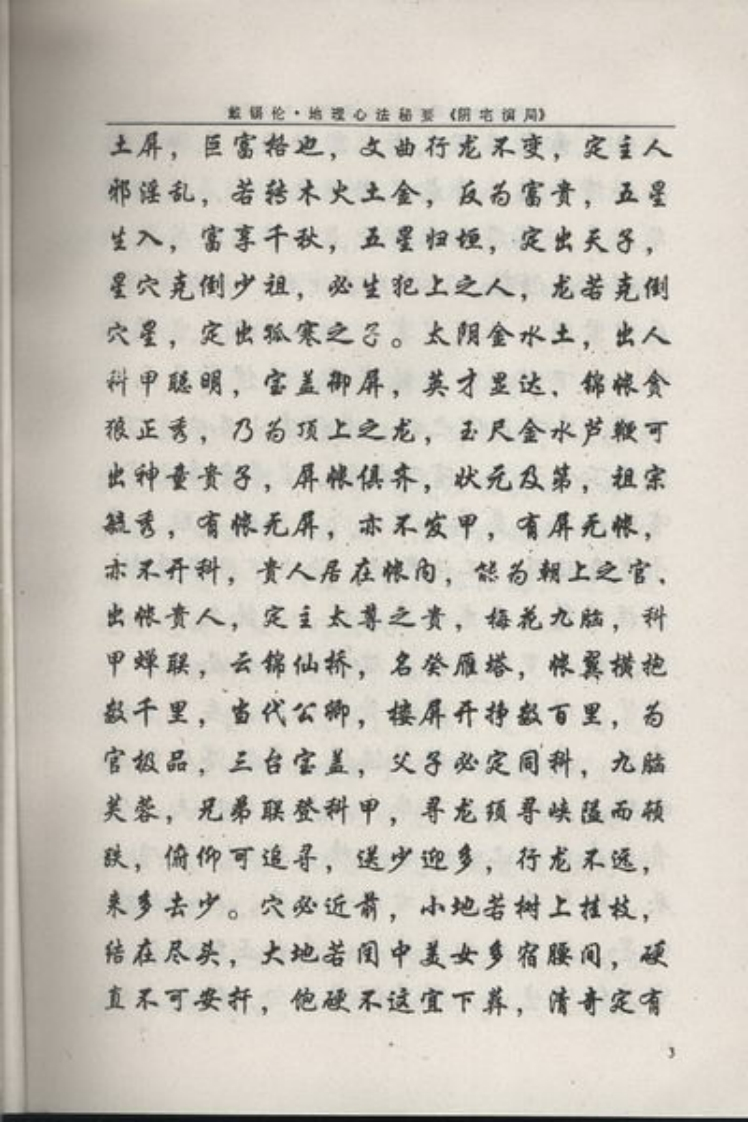 戴锡伦·地理心法秘要《阴宅演局》
土屏，巨富格也，文曲行龙不变，定主人
邪淫乱，若转木火土金，反为富贵，五星
生入，富享千秋，五星归垣，定出天子，
星穴克倒少祖，必生犯上之人，龙若克倒
穴星，定出孤寒之子。太阴金水土，出人
科甲聪明，宝盖御屏，英才显达，锦帐贪
狼正秀，乃为顶上之龙，玉尺金水芦鞭可
出神童贵子，屏帐俱齐，状元及第，祖宗
毓秀，有帐无屏，亦不发甲，有屏无帐，
亦不开科，贵人居在帐内，能为朝上之官、
出帐贵人，定主太尊之贵，梅花九脑，科
甲蝉联，云锦仙桥，名登雁塔，帐翼横抱
数千里，当代公卿，楼屏开挣数百里，为
官极品，三台宝盖，父子必定同科，九脑
芙蓉，兄弟联登科甲，寻龙须寻峡隘而顿
跌，俯仰可追寻，送少迎多，行龙不远，
来多去少。穴必近前，小地若树上桂枝，
结在尽头，大地若闺中美女多宿腰间，硬
直不可安扦，饱硬不这宜下葬，清奇定有
3